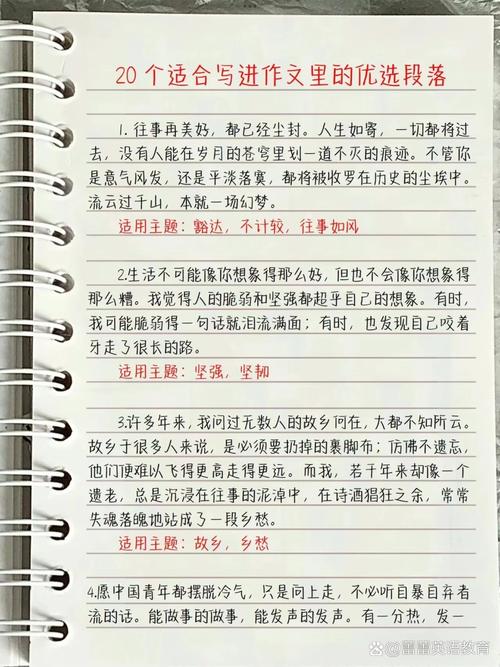 20个适合写进作文里的优选段落
1.往事再美好，都已经尘封。人生如寄，一切都将过
去，没有人能在岁月的苍穹里划一道不灭的痕迹。不管你
是意气风发，还是平淡落寞，都将被收罗在历史的尘埃中。
流云过千山，本就一场幻梦。
适用主题：豁达，不计较，往事如风
2.生活不可能像你想象得那么好，但也不会像你想象得
那么糟。我觉得人的脆弱和坚强都超乎自己的想象。有时，
我可能脆弱得一句话就泪流满面；有时，也发现自己咬着
牙走了很长的路。
适用主题：坚强，坚韧
3.许多年来，我问过无数人的故乡何在，大都不知所云。
故乡于很多人来说，是必须要扔掉的裹脚布；仿佛不遗忘，
他们便难以飞得更高走得更远。而我，若干年来却像一个
遗老，总是沉浸在往事的泥淖中，在诗酒猖狂之余，常常
失魂落魄地站成了一段乡愁。
适用主题：故乡，乡愁
4.愿中国青年都摆脱冷气，只是向上走，不必听自暴自弃者
流的话。能做事的做事，能发声的发声。有一分热，发一
雷雷英语教育